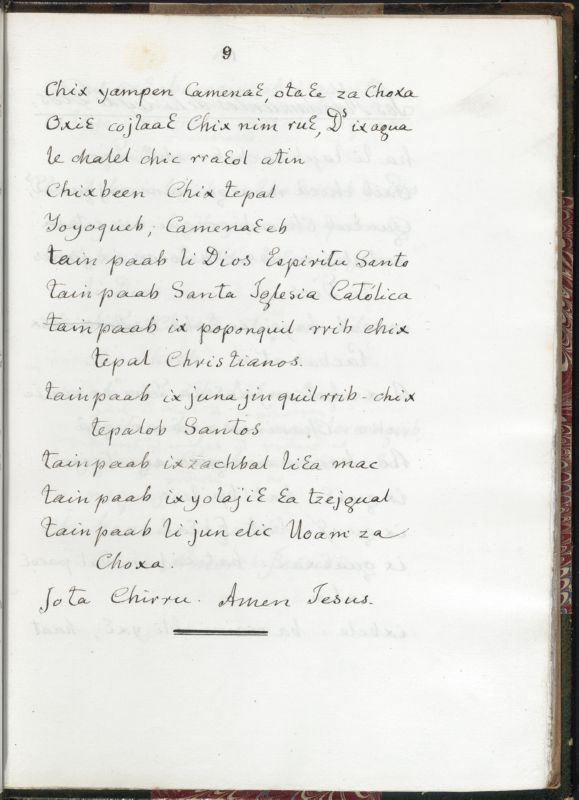 9
Chix yampen Camenaɛ, otaɛe za Choxa
Oxiɛ cojlaaɛ Chix nim ruɛ, Dˢ ixagua
le chalel chic rraɛol atin
Chixbeen Chix tepal
Yoyoqueb, Camenaɛeb
tain paab li Dios Espiritu Santo
tain paab Santa Iglesia Católica
tain paab ix poponquil rrib chix
tepal Christianos.
tain paab ix juna jin quil rrib chix
tepalob Santos
tain paab ixzachbal liɛa mac
tain paab ix yolajiɛ ɛa tzejgual
tain paab li jun elic Uoam za
Choxa.
Jota Chirru. Amen Jesus.